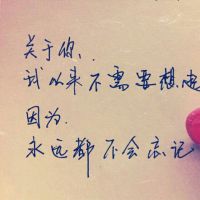 关于你、
我从来不需要想起
因为.
永远都不会忘记